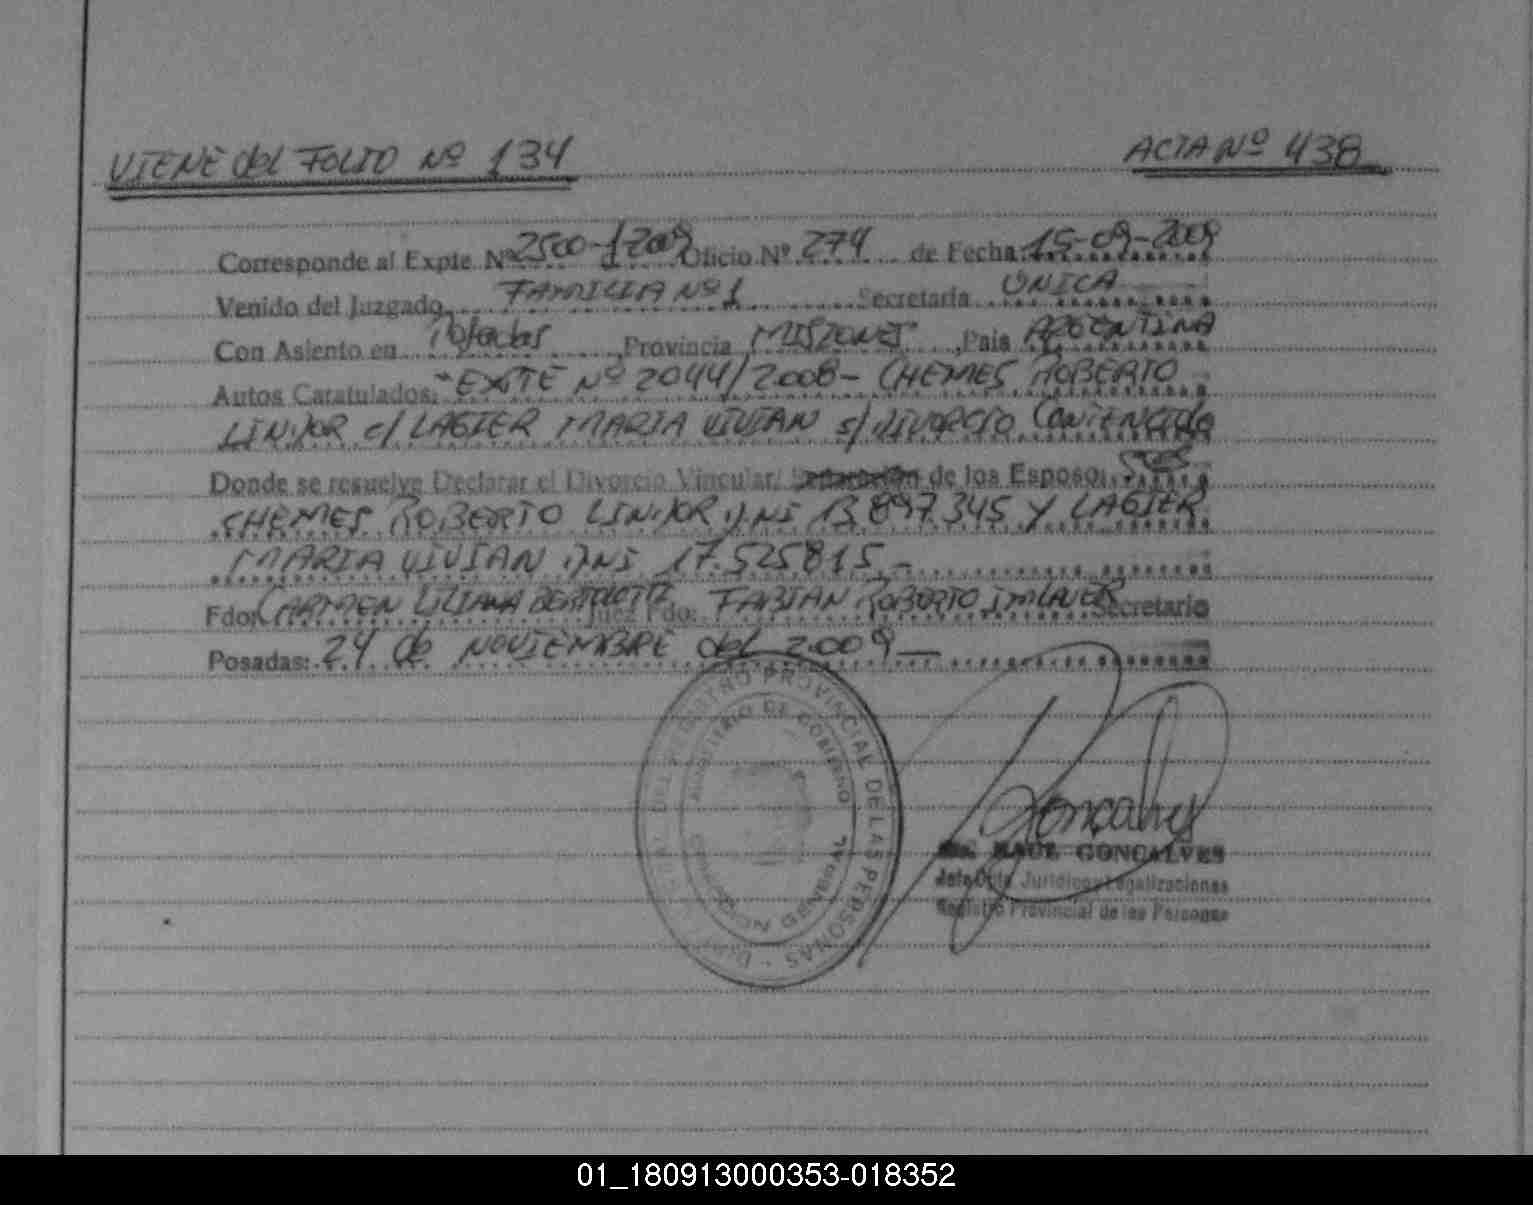 VIENE del FOLIO Nº 134
ACTA Nº 438
Corresponde al Expte. Nº 2500-1-2009 Oficio Nº 274 de Fecha: 15-09-2009
Venido del Juzgado FAMILIA Nº 1 Secretaria UNICA
Con Asiento en Posadas, Provincia MISIONES, Pais ARGENTINA
Autos Caratulados: "EXPTE Nº 2044/2008 - CHEMES ROBERTO
LINDOR c/ LAGIER MARIA VIVIAN s/ DIVORCIO CONTENCIOSO
Donde se resuelve Declarar el Divorcio Vincular/ Separación de los Esposos:
CHEMES ROBERTO LINDOR DNI 13.897.345 Y LAGIER
MARIA VIVIAN DNI 17.525815.-
Fdo: CARMEN LILIANA Juez Fdo: FABIAN ROBERTO Secretario
Posadas: 24 de NOVIEMBRE del 2.009_
REGISTRO PROVINCIAL DE LAS PERSONAS
MINISTERIO DE GOBIERNO
Goncalves
RAUL GONCALVES
Jefe Dpto. Jurídico y Legalizaciones
Registro Provincial de las Personas
01_180913000353-018352